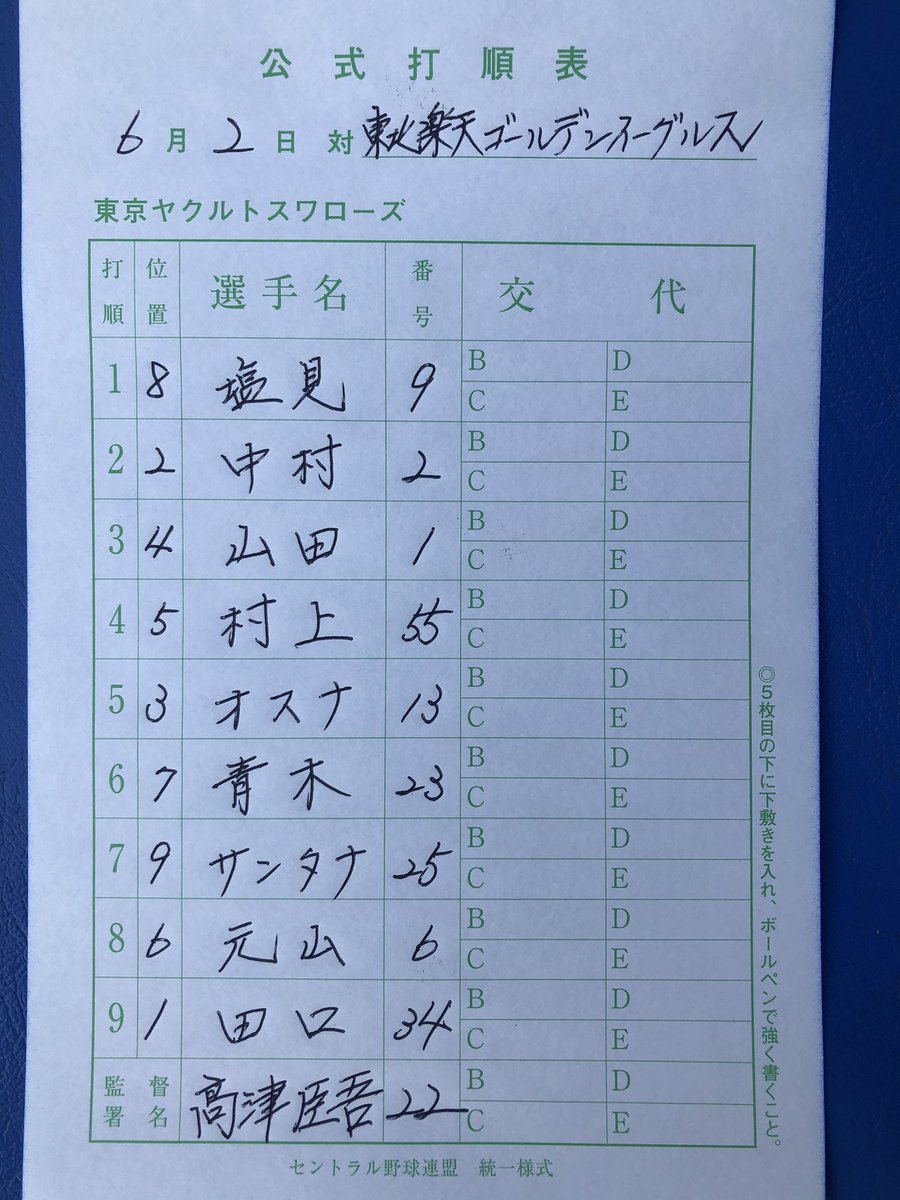 公式打順表
6月2日 対 東北楽天ゴールデンイーグルス
東京ヤクルトスワローズ
打順 位置 選手名 番号 交代
1 8 塩見 9 B D C E
2 2 中村 2 B D C E
3 4 山田 1 B D C E
4 5 村上 55 B D C E
5 3 オスナ 13 B D C E
6 7 青木 23 B D C E
7 9 サンタナ 25 B D C E
8 6 元山 6 B D C E
9 1 田口 34 B D C E
監督署名 髙津臣吾 22 B D C E
◎5枚目の下に下敷きを入れ、ボールペンで強く書くこと。
セントラル野球連盟 統一様式